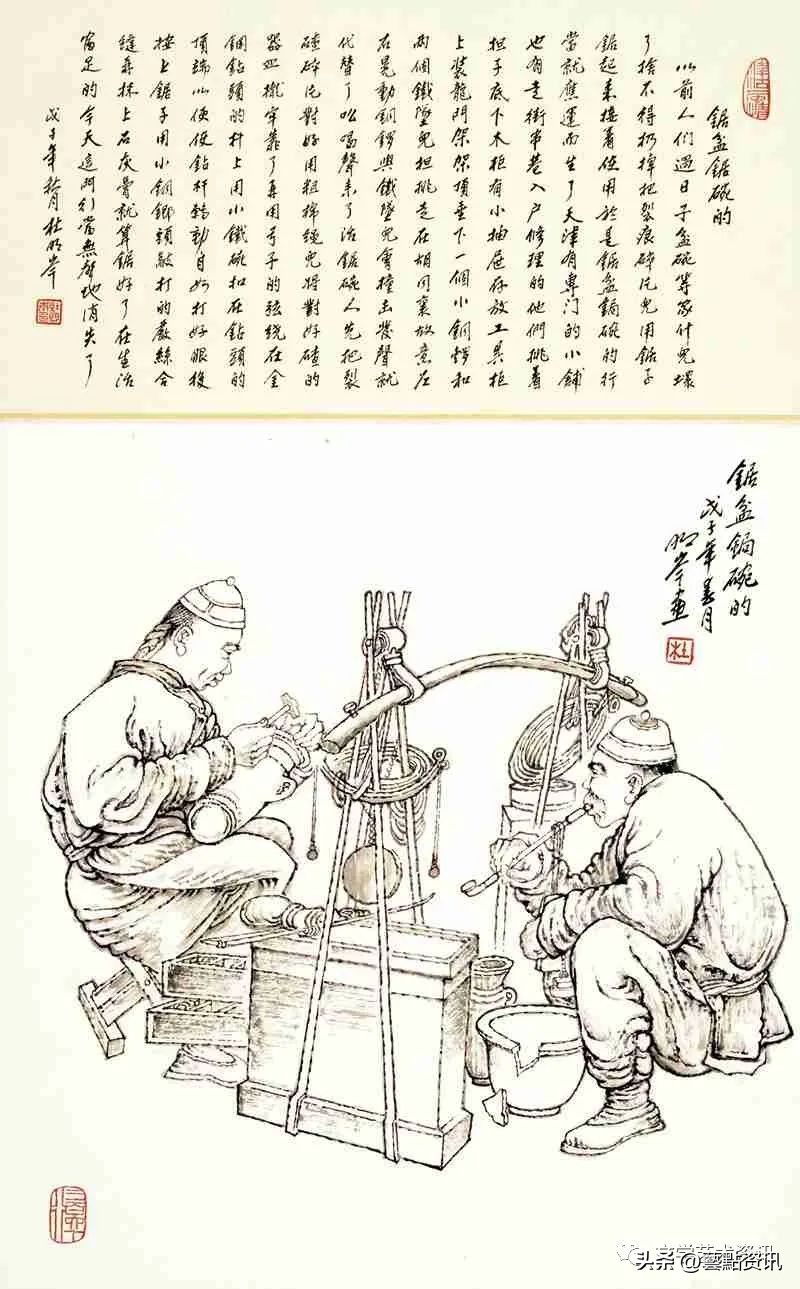 鋸盆鋸碗的
以前人们過日子盆碗等家什兒壞
了捨不得扔掉把裂痕碎片兒用鋸子
鋸起来接着使用於是鋸盆鋦碗的行
當就應運而生了天津有專门的小鋪
也有走街串巷入户修理的他們挑着
担子底下木柜有小抽屉存放工具柜
上装龍门架架頂垂下一個小铜鑼和
两個鐵墜兒担挑走在胡同裏故意左
右晃動铜鑼與鐵墜兒會撞击发聲就
代替了吆喝聲来了活鋸碗人先把裂
碴碎片對好用粗棉绳兒将對好碴的
器皿攏牢靠了再用弓子的弦绕在金
钢鉆頭的杆上用小鐵碗扣在鉆頭的
頂端以便使鉆杆轉動自如打好眼後
按上鋸子用小铜鎯頭敲打的嚴絲合
縫再抹上石灰膏就算鋸好了在生活
富足的今天這门行當無聲地消失了
戊子年秋月杜明岑
鋸盆鋦碗的
戊子年夏月
明岑畫
杜
头条 @藝點资讯